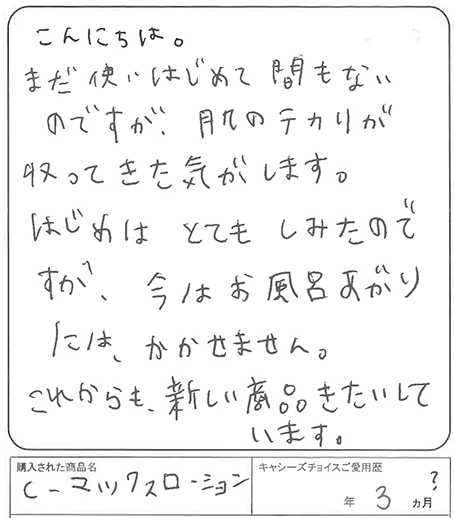 こんにちは。
まだ使いはじめて間もない
のですが、肌のテカリが
収ってきた気がします。
はじめは とても しみたので
すが、今はお風呂あがり
には、かかせません。
これからも、新しい商品きたいして
います。
購入された商品名
C-マックスローション
キャシーズチョイスご愛用歴
年 3 ヵ月 ?